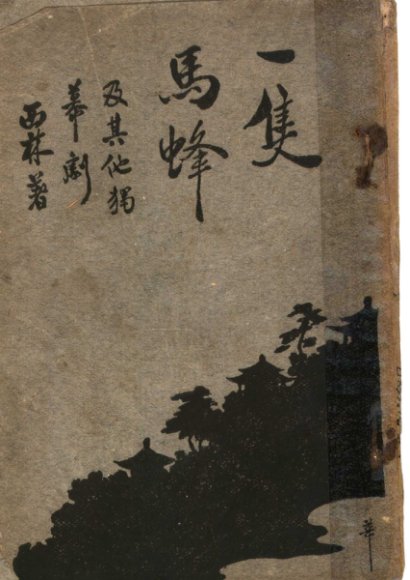 一隻
馬蜂
及其他獨
幕劇
西林著
華